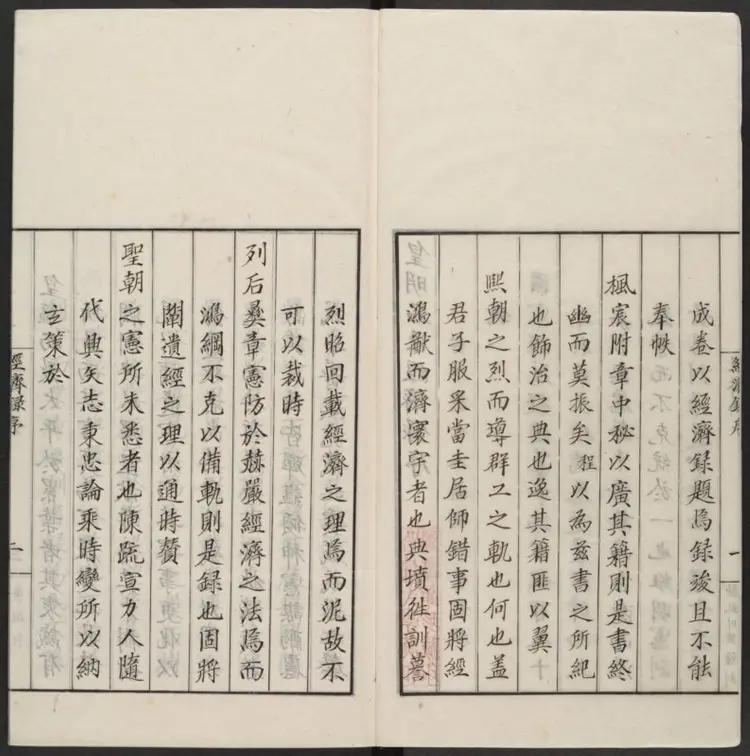 成卷以經濟録題焉録竣且不能
奉帙
楓宸附章中秘以廣其籍則是書終
幽而莫振矣程以為兹書之所紀
也飾治之典也逸其籍匪以翼
熙朝之烈而導群工之軌也何也蓋
君子服采當圭居師錯事固將經
鴻猷而濟寰宇者也典墳徃訓謩
烈昭回載經濟之理焉而泥故不
可以裁時
列后彛章憲防於赫嚴經濟之法焉而
鴻綱不克以備軌則是録也固將
闡遺經之理以通時贊
聖朝之憲所未悉者也陳䟽宣力人隨
代興矢志秉忠論乘時變所以納
玄策於
經濟録序
二